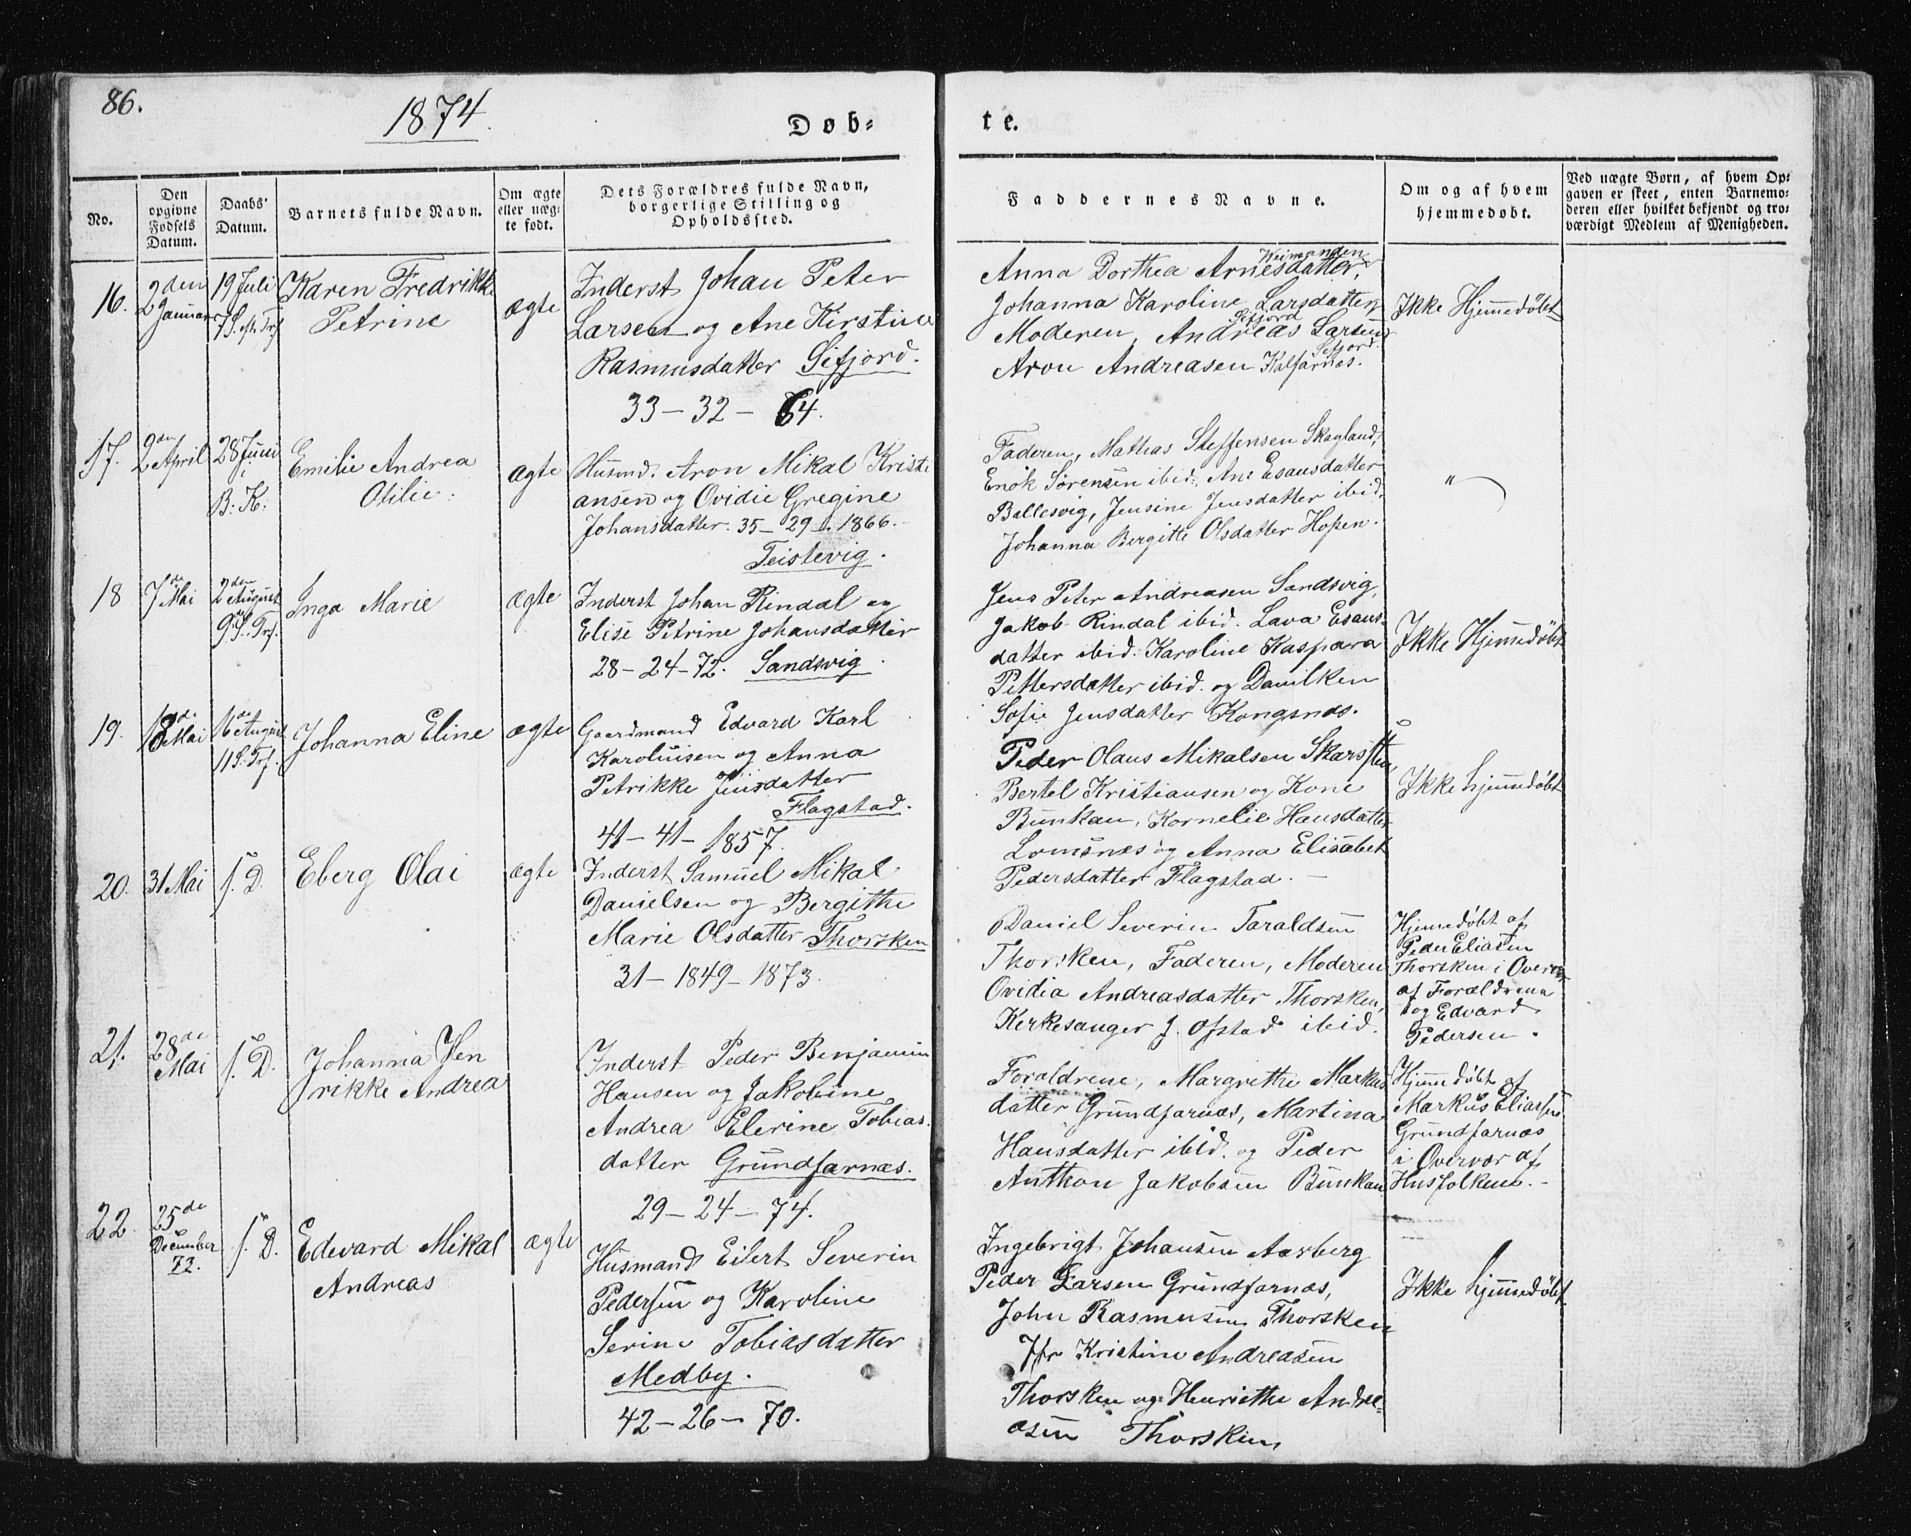 86.
1874.
Døb-
te.
No.
Den opgivne Fødsels Datum.
Daabs' Datum.
Barnets fulde Navn.
Om ægte eller uægte født.
Dets Forældres fulde Navn, borgerlige Stilling og Opholdssted.
Faddernes Navne.
Om og af hvem hjemmedøbt.
Ved uægte Børn, af hvem Opgaven er skeet, enten Barnemoderen eller hvilket bekjendt og troværdigt Medlem af Menigheden.
16.
2den Januar
19 Juli
7 S. eft. Trf
Karen Fredrikke
Petrine
ægte
Inderst Johan Peter
Larsen og Ane Kirstine
Rasmusdatter Sifjord.
33-32-64.
Anna Dorthea Arnesdatter,
Johanna Karoline Larsdatter
Sifjord
Moderen, Andreas Larsen
Sifjord.
Aron Andreasen Kalfarnes.
Ikke Hjemmedøbt
17.
2den April
28 Juni
i
B: K:
Emilie Andrea
Otilie.
ægte
Husmd. Aron Mikal Kristi
ansen og Ovidie Gregine
Johansdatter. 35-29-1866.
Teistevig.
Faderen, Mathas Steffensen Skagland,
Enok Sørensen ibid:, Ane Esausdatter
Ballesvig, Jensine Jensdatter ibid.
Johanna Bergitte Olsdatter Hopen.
"
18
7de Mai
2den August
9 S. Trf.
Inga Marie
ægte
Inderst Johan Rindal og
Elise Petrine Johansdatter
28-24-72. Sandsvig.
Jens Peter Andreasen Sandsvig,
Jakob Rindal ibid. Lava Esaus-
datter ibid. Karoline Kaspara
Pettersdatter ibid. og Danilken
Sofie Jensdatter Kongsnes.
Ikke Hjemmedøbt
19.
18de Mai
16de August
11 S. Trf.
Johanna Eline
ægte
Gaardmand Edvard Karl
Karoliusen og Anna
Petrikke Jensdatter
Flagstad.
41-41-1857.
Peder Olaus Mikalsen Skarsften,
Bertel Kristiansen og Kone
Bunkan, Kornelie Hansdatter
Lomsnes og Anna Elisabet
Pedersdatter Flagstad.
Ikke hjemmedøbt
20.
31 Mai
s. D.
Eberg Olai
ægte
Inderst Samuel Mikal
Danielsen og Bergithe
Marie Olsdatter Thorsken
31-1849-1873.
Daniel Severin Taraldsen
Thorsken, Faderen, Moderen
Ovidia Andreasdatter Thorsken,
Kerkesanger J. Ofstad ibid.
Hjemmedøbt af
Peder Eliasen
Thorsken i Overvær
af Forældrene
og Edvard
Pedersen.
21.
28de Mai
s. D.
Johanna Hen
rikke Andrea
Inderst Peder Benjamin
Hansen og Jakobine
Andrea Elerine Tobias
datter Grundfarnæs.
29-24-74.
Forældrene, Margrethe Markus
datter Grundfarnæs, Martina
Hansdatter ibid. og Peder
Anthon Jakobsen Bunkan
Hjemmedøbt af
Markus Eliassen
Grundfarnæs
i Overvær af
Husfolkene.-
22.
25de
December
73.
s. D.
Edevard Mikal
Andreas
ægte
Husmand Eilert Severin
Pedersen og Karoline
Serine Tobiasdatter
Medby.
42-26-70.
Ingebrigt Johansen Aarberg
Peder Larsen Grundfarnæs,
John Rasmusen Thorsken
Kristine Andreasen
Thorsken og Henriethe Andre-
asen Thorsken
Ikke hjemmedøbt